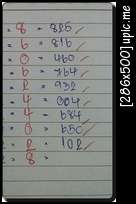 = 8 = 825
= 6 = 816
= 0 = 460
= 6 = 764
= 2 = 932
= 4 = 004
= 4 = 684
= 0 = 650
= 2 = 102
= 8 =
[286x500]upic.me